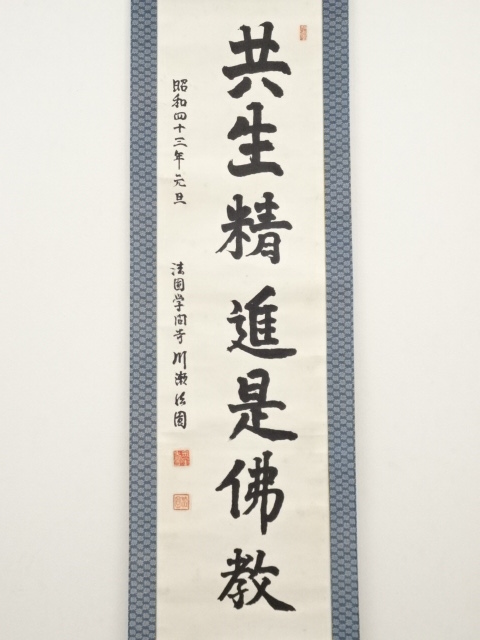 共生精進是佛教
昭和四十三年元旦
法園学問寺 川瀬法園